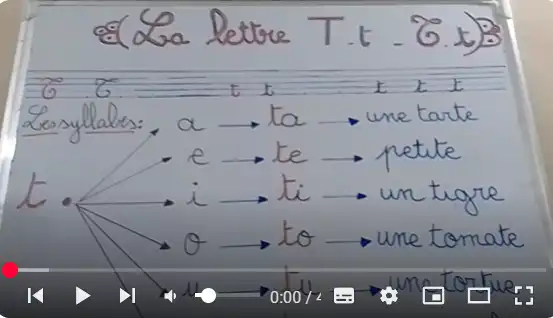 La lettre T.t - T.t
T T t t t t t
Les syllabes:
a → ta → une tarte
e → te → petite
t. i → ti → un tigre
o → to → une tomate
u → tu → une tortue
0:00 / 4